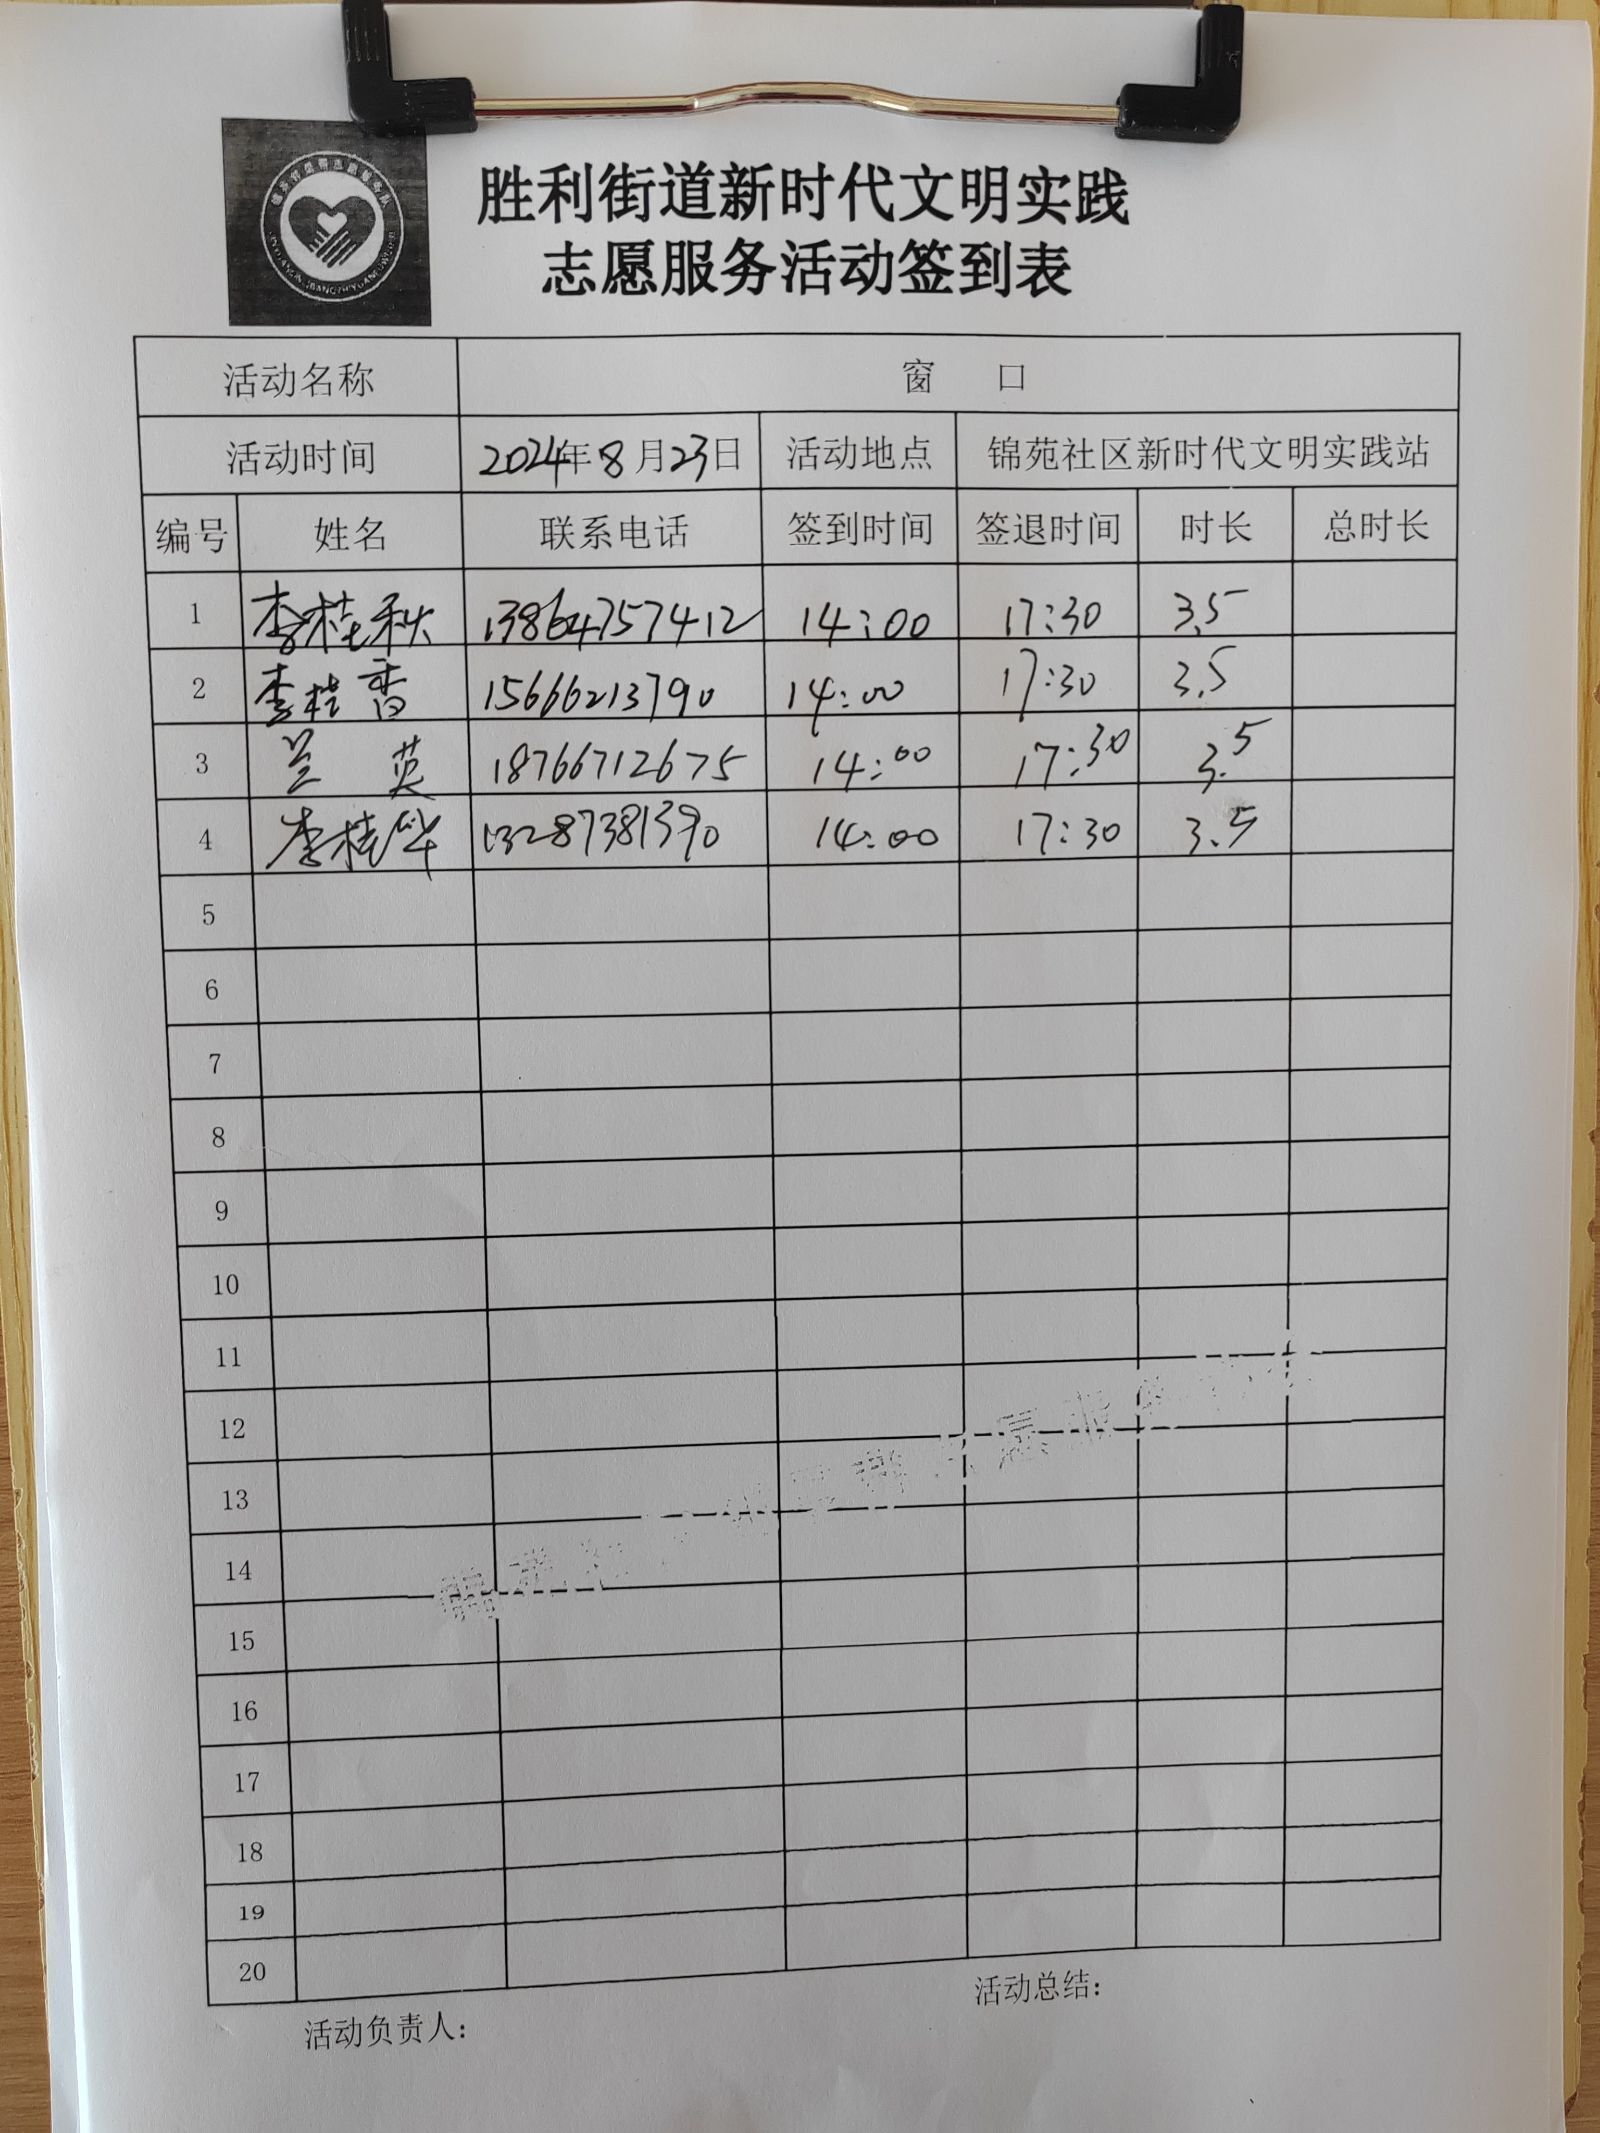 胜利街道新时代文明实践
志愿服务活动签到表
活动名称 窗 口
活动时间 2024年8月23日 活动地点 锦苑社区新时代文明实践站
编号 姓名 联系电话 签到时间 签退时间 时长 总时长
1 李桂秋 13864757412 14:00 17:30 3.5
2 李桂香 15666213790 14:00 17:30 3.5
3 兰 英 18766712675 14:00 17:30 3.5
4 李桂华 13287381390 14:00 17:30 3.5
5
6
7
8
9
10
11
12
13
14
15
16
17
18
19
20
活动负责人： 活动总结：